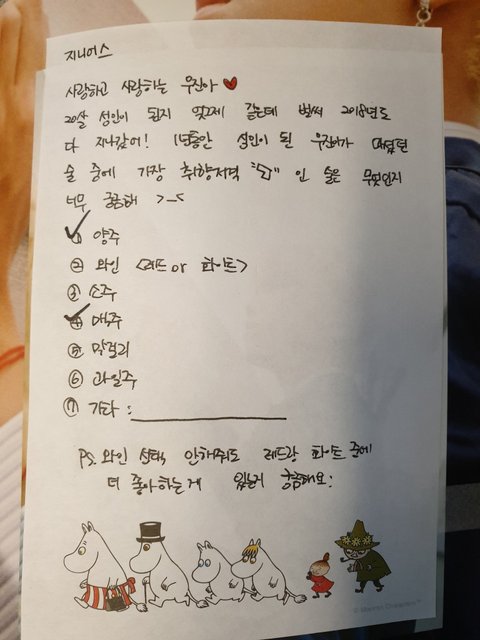 지니어스
사랑하고 사랑하는 우진아 ♥
20살 성인이 된지 엊그제 같은데 벌써 2018년도
다 지나갔어! 1년동안 성인이 된 우진이가 마셨던
술 중에 가장 취향저격 "탕" 인 술은 무엇인지
너무 궁금해 >_<
① 양주
② 와인 <레드 or 화이트>
③ 소주
④ 맥주
⑤ 막걸리
⑥ 과일주
⑦ 기타 :
PS. 와인 선택 안해줘도 레드랑 화이트 중에
더 좋아하는게 있는지 궁금해요:
© Moomin Characters™